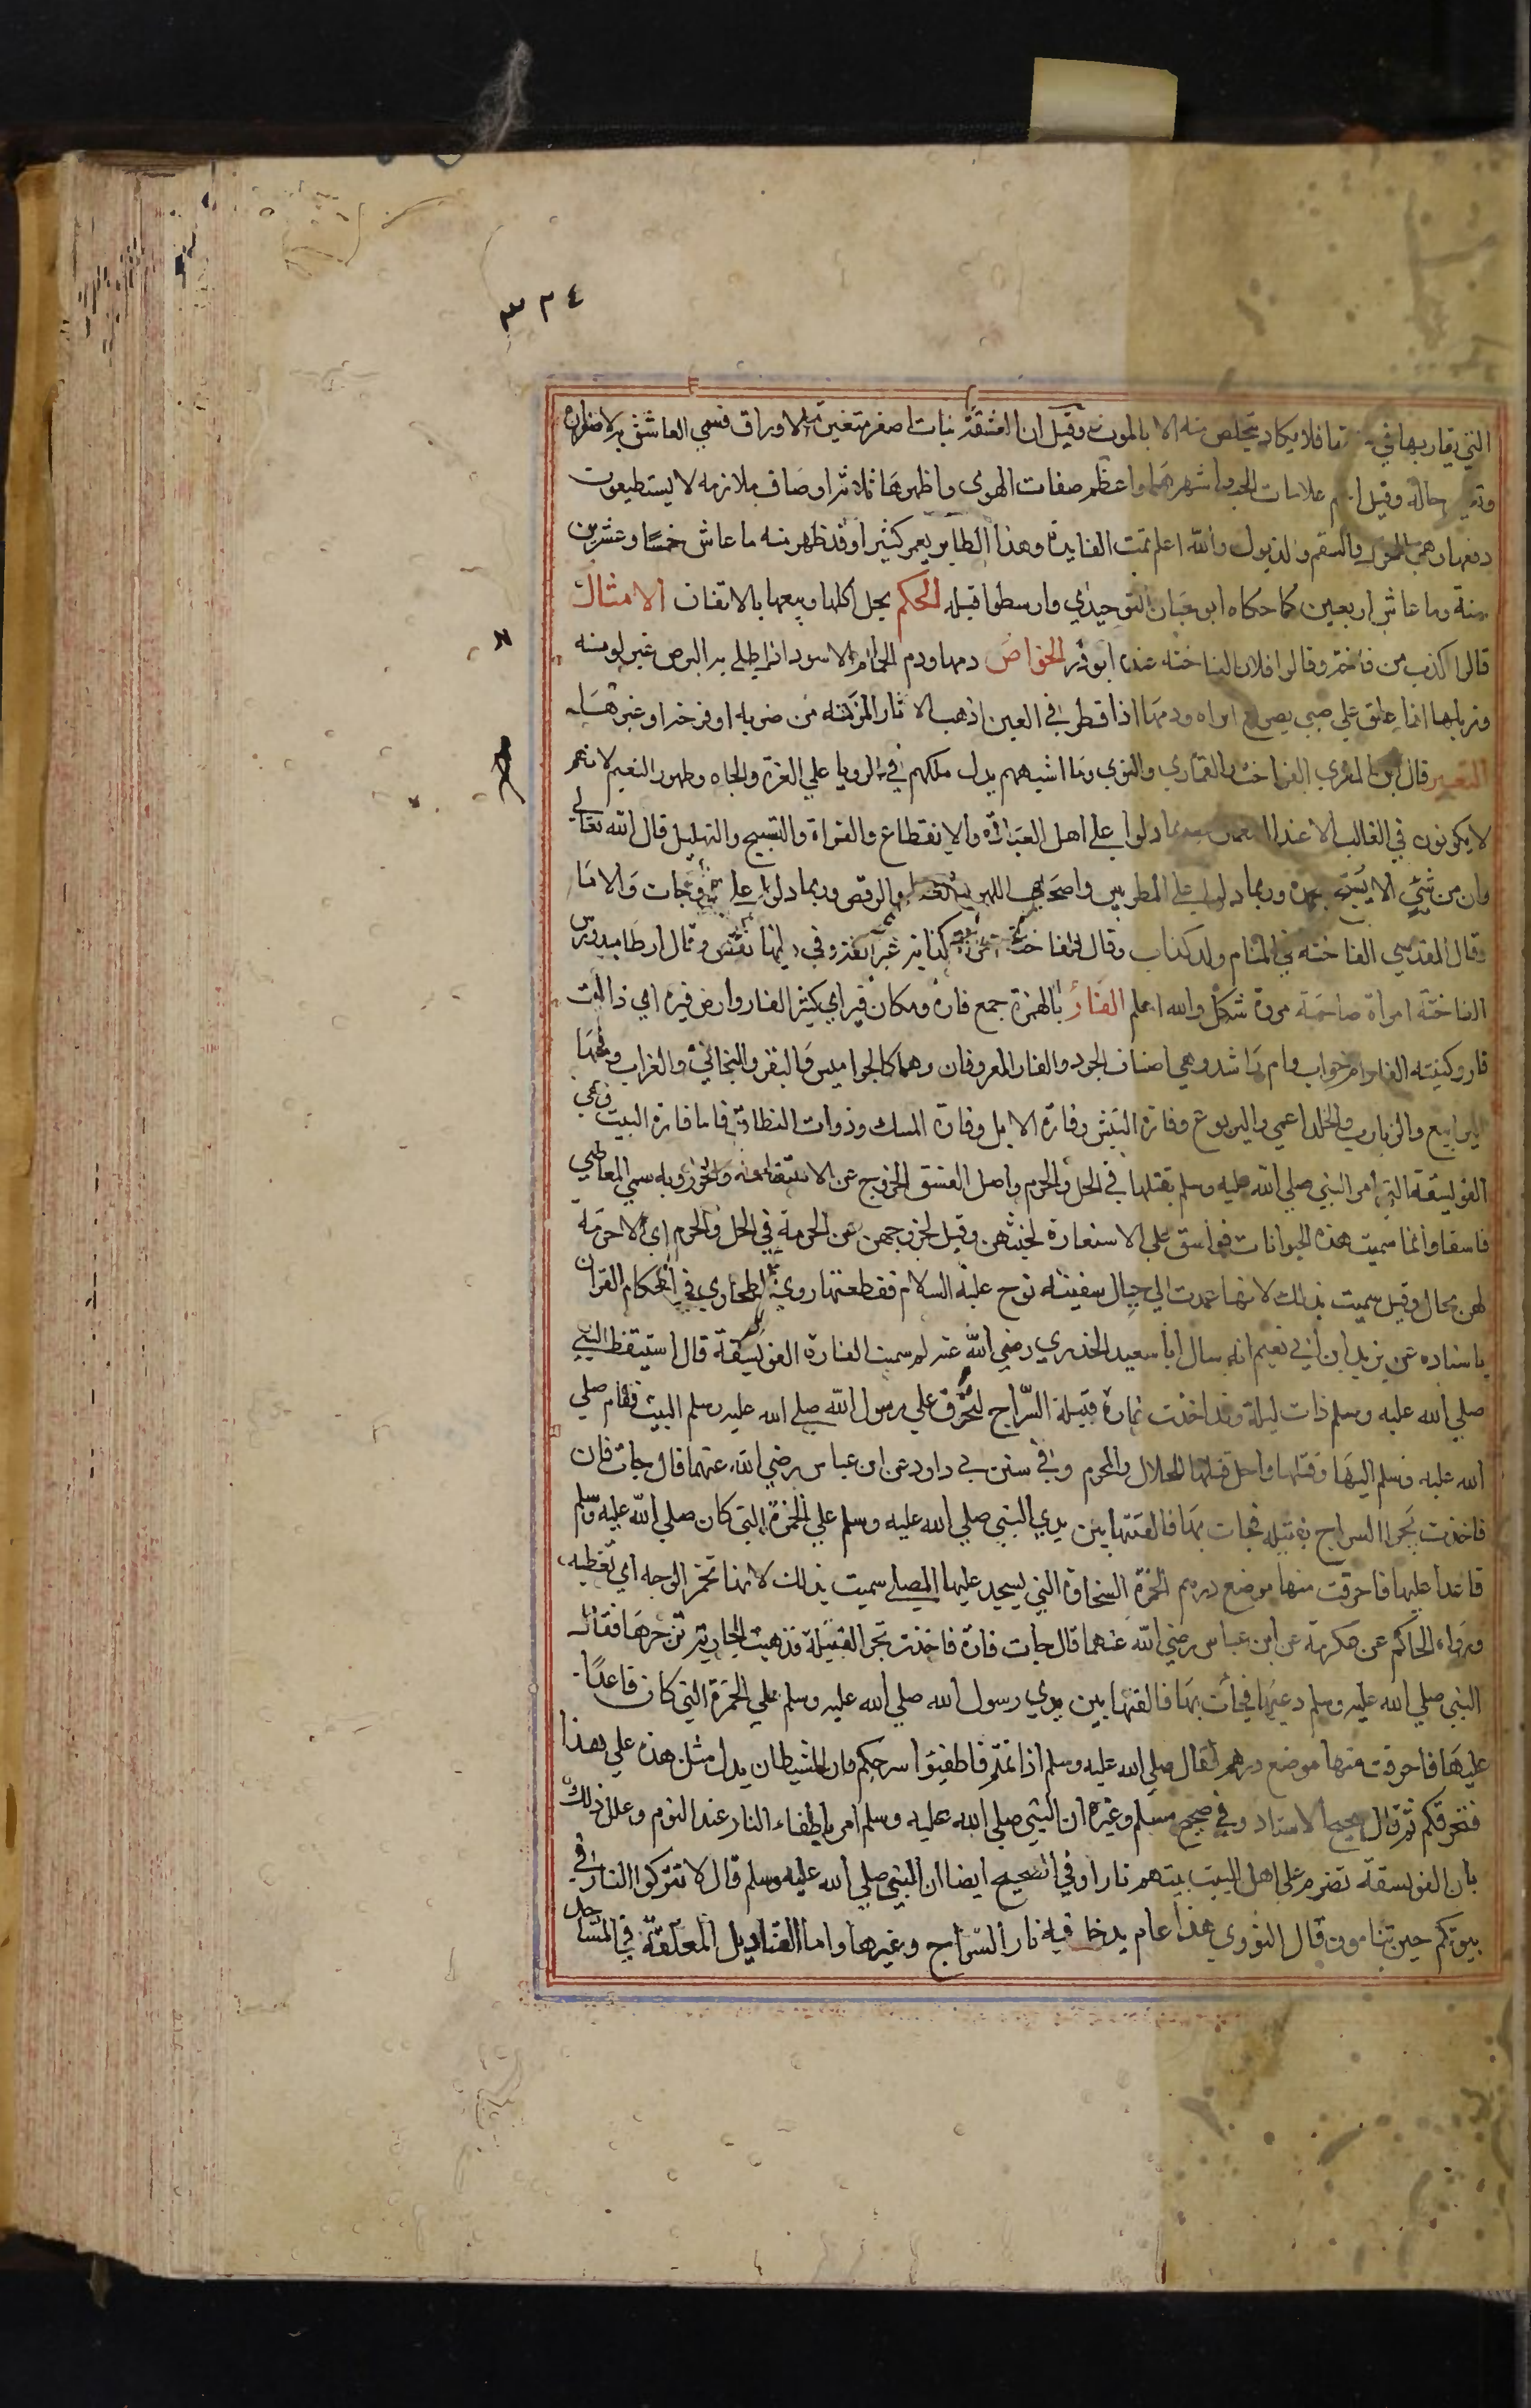 ٣٢٤
التي يقاربها في فلا يكاد يتخلص منه الا بالموت وقيل ان العشقة نبات اصفر متغير الاوراق فسمي العاشق به لاصفراره
وتغير حاله وقيل علامات الحب واشهرها واعظم صفات الهوى واظهرها ثلاثة اوصاف ملازمه لا يستطيعون
دفعها وهي النحول والسقم والذبول والله اعلم تمت الفايدة وهذا الطاير يعمر كثيرا وقد ظهر منه ما عاش خمسا وعشرين
سنة وما عاش اربعين كما حكاه ابو حيان التوحيدي وارسطوا قبله الحكم يحل اكلها وبيعها بالاتفاق الامثال
قالوا اكذب من فاختة وقالوا فلان الفاخته عنده ابو ذر الخواص دمها ودم الحمام الاسود اذا طلي به البرص غير لونه
وزبلها اذا علق علي صبي يصرع ابراه ودمها اذا قطر في العين اذهب الاثار المزمنه من ضربه او قرحه او غيرها
التعبير قال ابن المقري الفواخت والقماري والنوبي وما اشبههم يدل ملكهم في الرويا علي العز والجاه وظهور النعيم لانهم
لا يكونون في الغالب الا عند دلوا علي اهل العبادة والانقطاع والقراة والتسبيح والتهليل قال الله تعالي
وان من شيئ الا يسبح بحمده وربما دلوا علي المطربين واصحاب اللهو والرقص وربما دلوا علي الزوجات والاما
وقال المقدسي الفاخته في المنام ولد كذاب وقال الفاخته كذابه غير الفة وفي دينها نقص وقال ارطاميدورس
الفاخته امراة صاحبة مروة شكل والله اعلم الفار بالهمزة جمع فارة ومكان فير اي كثير الفار وارض فيرة اي ذات
فار وكنيته الفار ام خراب وام راشد وهي اصناف الجرد والفار المعروفان وهما كالجواميس والبقر والبخاتي والعراب ومنها
اليرابيع والزباب والخلد اعمي واليربوع وفارة البيش وفارة الابل وفارة المسك وذوات النطاق فاما فارة البيت وهي
الفويسقة التي امر النبي صلي الله عليه وسلم بقتلها في الحل والحرم واصل الفسق الخروج عن الاستقامه والجور وبه سمي العاصي
فاسقا وانما سميت هذه الحيوانات فواسق علي الاستعارة لخبثهن وقيل لخروجهن عن الحرمة في الحل والحرم اي لا حرمة
لهن بحال وقيل سميت بذلك لانها عمدت الي حبال سفينه نوح عليه السلام فقطعتها روي الطحاوي في احكام القران
باسناده عن يزيد ابن ابي نعيم انه سال ابا سعيد الخدري رضي الله عنه لم سميت الفارة الفويسقة قال استيقظ النبي
صلي الله عليه وسلم ذات ليلة وقد اخذت فارة فتيلة السراج لتحرق علي رسول الله صلي الله عليه وسلم البيت فقام صلي
الله عليه وسلم اليها وقتلها واحل قتلها للحلال والمحرم وفي سنن بي داود عن ابن عباس رضي الله عنهما قال جات فان
فاخذت تجر السراج فتيله فجات بها فالقتها بين يدي النبي صلي الله عليه وسلم علي الخمرة التي كان صلي الله عليه وسلم
قاعدا عليها فاحرقت منها موضع درهم الخمرة السجادة التي يسجد عليها المصلي سميت بذلك لانها تخمر الوجه اي تغطيه
ورواه الحاكم عن عكرمة عن ابن عباس رضي الله عنهما قال جات فارة فاخذت تجر الفتيلة فذهبت الجارية تزجرها فقال
النبي صلي الله عليه وسلم دعيها فجأت بها فالقتها بين يدي رسول الله صلي الله عليه وسلم علي الخمرة التي كان قاعدًا
عليها فاحرقت منها موضع درهم فقال صلي الله عليه وسلم اذا نمتم فاطفيوا سرجكم فان الشيطان يدل مثل هذه علي هذا
فتحرقكم ثم قال صحيح الاسناد وفي صحيح مسلم وغيره ان النبي صلي الله عليه وسلم امر باطفاء النار عند النوم وعلل ذلك
بان الفويسقة تضرم على اهل البيت بيتهم نارا وفي الصحيح ايضا ان النبي صلي الله عليه وسلم قال لا تتركوا النار في
بيوتكم حين تنامون قال النووي هذا عام يدخل فيه نار السراج وغيرها واما القناديل المعلقة في المساجد